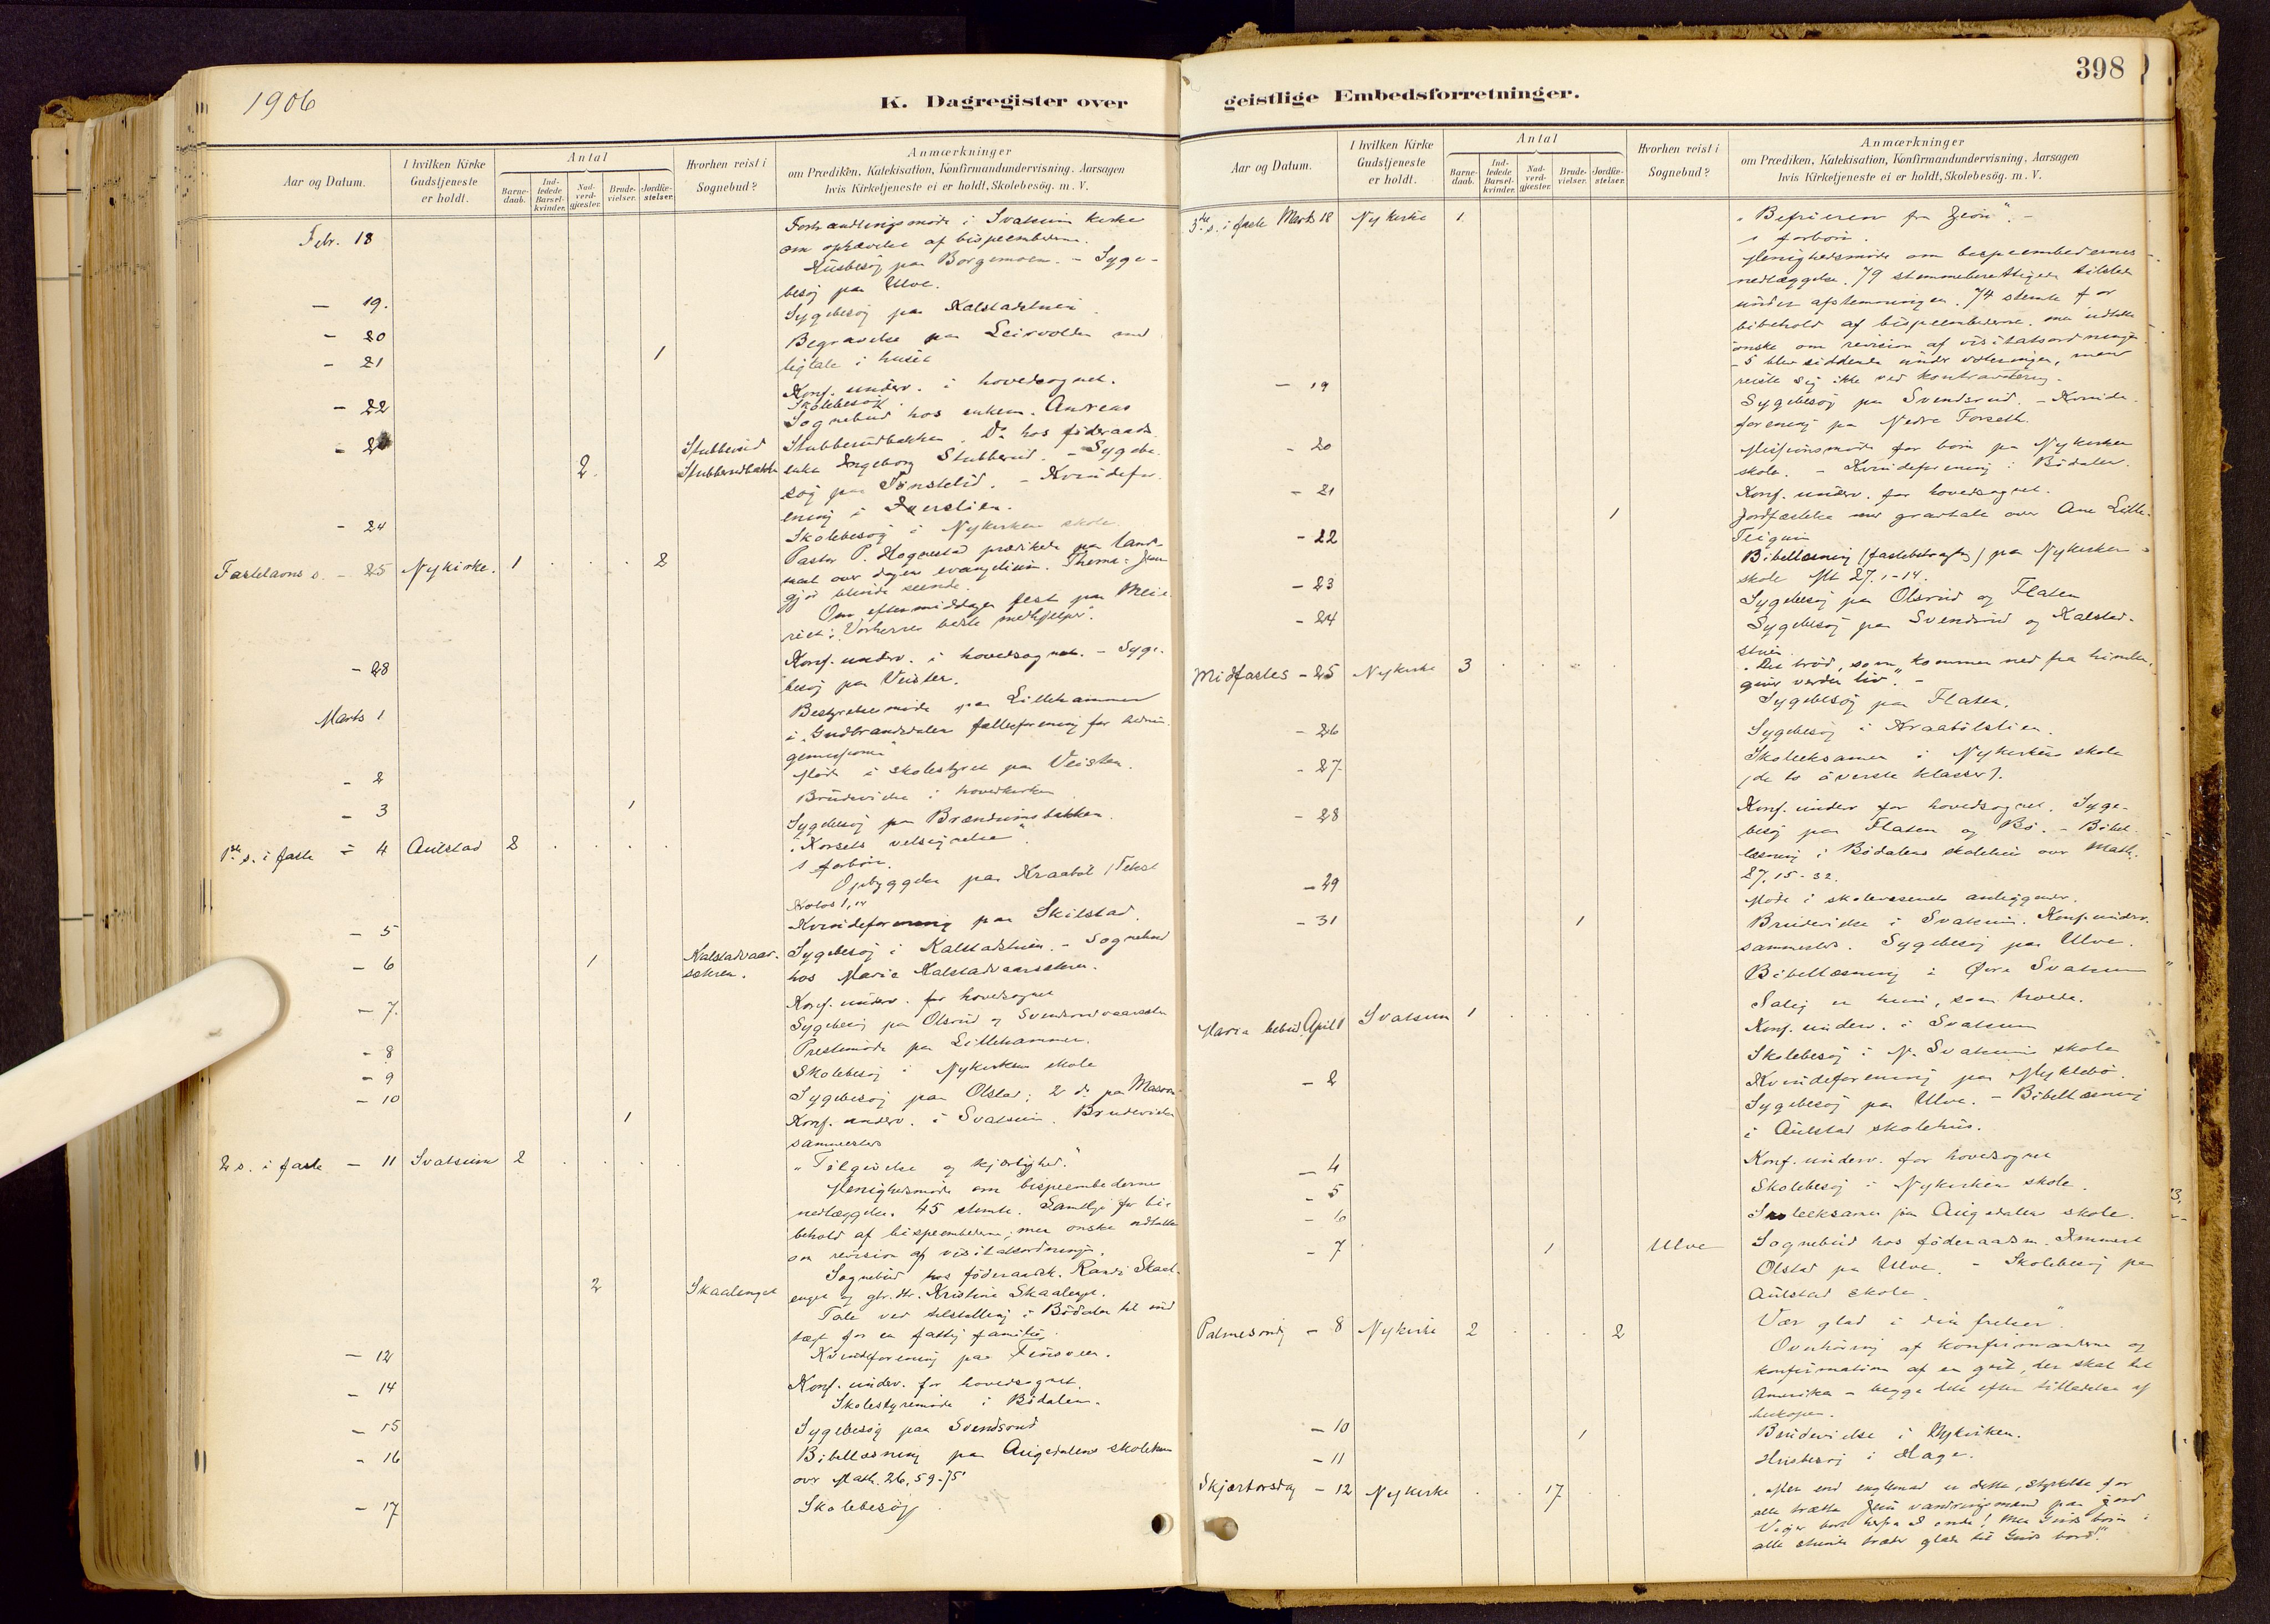 1906
K. Dagregister over
Aar og Datum.
I hvilken Kirke Gudstjeneste er holdt.
Antal
Barne-daab.
Ind-ledede Barsel-kvinder.
Nad-verd-gjæster.
Brude-vielser.
Jordfæ-stelser.
Hvorhen reist i Sognebud?
Anmærkninger
om Prædiken, Katekisation, Konfirmandundervisning, Aarsagen
hvis Kirketjeneste ei er holdt, Skolebesög. m. V.
Febr. 18
Forhandlingsmöde i Svatsum kirke
om ophævelse af bispeembederne.
Husbesög paa Borgemoen. - Syge-
besög paa Ulve.
- 19.
Sygebesög paa Kalstadstuen
- 20
Begravelse paa Leirvolden med
- 21 1
ligtale i huset
Konf. underv. i hovedsognet.
Skolebesög.
- 22
Sognebud hos enkem. Andreas
Stubberud Stubberudbakken. Do hos föderaads
2. Stubberudbakken enke Ingeborg Stubberud. - Sygebe-
sög paa Tönstelid. - Kvindefor-
ening i Iverslien.
- 24
Skolebesög i Nykirken skole
Fastelavns s. - 25 Nykirke. 1 . . . 2
Pastor P. Hognestad prædikede paa lands-
maal over dagens evangelium. Thema: Jesus
gjör blinde seende.
Om eftermiddagen fest paa Meie-
riet: "Vorherres bedste medhjelper".
- 28
Konf. underv. i hovedsognet. - Syge-
besög paa Veisten.
Marts 1
Bestyrelsesmöde paa Lillehammer
i "Gudbrandsdalens fællesforening for hednin-
gemission"
- 2
Möde i skolestyret paa Veisten.
- 3 1
Brudevielse i hovedkirken
Sygebesög paa Brændumsbakken.
1ste s. i faste - 4 Aulstad 2 . . . .
"Korsets velsignelse".
1 forbön.
Opbyggelse paa Kraaböl (Tekst
Kolos 1,
- 5
Kvindeforening paa Skilstad.
- 6 1 Kalstadvaar-
sætren.
Sygebesög i Kalstadstuen. - Sognebud
hos Marie Kalstadvaarsætren.
- 7.
Konf. underv. for hovedsognet
Sygebesög paa Olsrud og Svendsrudvaarsæter
- 8
Prestemöde paa Lillehammer.
- 9
Skolebesög i Nykirkens skole
- 10 1
Sygebesög paa Olstad; 2 do paa
Konf. underv. i Svatsum. Brudevielse
sammesteds
2 s. i faste - 11 Svatsum 2 . . . .
"Tilgivelse og kjærlighed."
Menighedsmöde om bispeembedernes
nedlæggelse. 45 stemte. Samtlige for bi-
behold af bispeembederne; men önske udtaltes
om revision af visitatsordningen.
2 Skaalenget
Sognebud hos föderaadsk. Randi Skaal-
enget og gbr. dtr. Kristine Skaalenget.
Tale ved tilstelling i Bödalen til ind-
tægt for en fattig familie.
- 12
Kvindeforening paa Finsveen.
- 14
Konf. underv. for hovedsognet.
Skolestyremöde i Bödalen.
- 15
Sygebesög paa Svendsrud
- 16
Bibellæsning paa Augedalens skolehus
over Math. 26, 59-75
- 17
Skolebesög
398
geistlige Embedsforretninger.
Aar og Datum.
I hvilken Kirke Gudstjeneste er holdt.
Antal
Barne-daab.
Ind-ledede Barsel-kvinder.
Nad-verd-gjæster.
Brude-vielser.
Jordfæ-stelser.
Hvorhen reist i Sognebud?
Anmærkninger
om Prædiken, Katekisation, Konfirmandundervisning, Aarsagen
hvis Kirketjeneste ei er holdt, Skolebesög. m. V.
3die s. i faste Marts 18 Nykirke 1.
"Befrieren fra Zion". -
1 forbön.
Menighedsmöde om bispeembedernes
nedlæggelse. 79 stemmeberettigede tilstede
under afstemningen. 74 stemte for
bibehold af bispeembederne, men udtalte
önske om revision af visitatsordningen.
5 blev siddende under voteringen, men
reiste sig ikke ved kontravotering.
- 19
Sygebesög paa Svendsrud. - Kvinde-
forening paa Nedre Forseth.
- 20
Missionsmöde for börn paa Nykirken
skole. - Kvindeforening i Bödalen.
- 21
Konf. underv. for hovedsognet.
1
Jordfæstelse med gravtale over Ane Lille-
Teigum
- 22
Bibellæsning (fastebetragtn) paa Nykirken
skole Mt 27. 1-14.
- 23
Sygebesög paa Olsrud og Flaten
- 24
Sygebesög paa Svendsrud og Kalstad-
stuen
Midfastes - 25 Nykirke 3 . . - .
"Det bröd, som kommer ned fra himlen,
giver verden liv". -
Sygebesög paa Flaten.
- 26
Sygebesög i Kraabölslien.
- 27.
Skoleeksamen i Nykirkens skole
(de to överste klasser).
- 28
Konf. underv for hovedsognet. Syge-
besög paa Flaten og Bö. - Bibel-
læsning i Bödalens skolehus over Math.
27, 15-32.
- 29
Möde i skolevæsenets anliggender.
- 31 1
Brudevielse i Svatsum. Konf. underv.
sammesteds. Sygebesög paa Ulve.
Bibellæsning i Övre Svatsum
Maria bebud. April 1 Svatsum 1 . . . .
"Salig er hun, som troede.
Konf. underv. i Svatsum
- 2
Skolebesög i N. Svatsums skole
Kvindeforening paa Myklebö.
Sygebesög paa Ulve. - Bibellæsning
i Aulstad skolehus.
- 4
Konf. underv. for hovedsognet
- 5
Skolebesög i Nykirkens skole.
- 6
Skoleeksamen paa Augedalens skole.
- 7 1 Ulve
Sognebud hos föderaadsm. Emmert
Olstad paa Ulve. - Skolebesög paa
Aulstad skole.
Palmesöndg - 8 Nykirke 2 . . . 2
"Vær glad i din frelser".
Overhöring af konfirmanterne og
konfirmation af en gut, der skal til
Amerika - begge dele efter tilladelse af
biskopen.
- 10 1
Brudevielse i Nykirken.
- 11
Husbesög i Hage.
Skjærtorsdag - 12 Nykirke . . 17 . .
"Mer end englemad er dette, styrkelse for
alle trætte Jesu vandringsmænd paa jord
Viger bort herfra I onde! Men Guds börn i
alle stunde træder glade til Guds bord!"